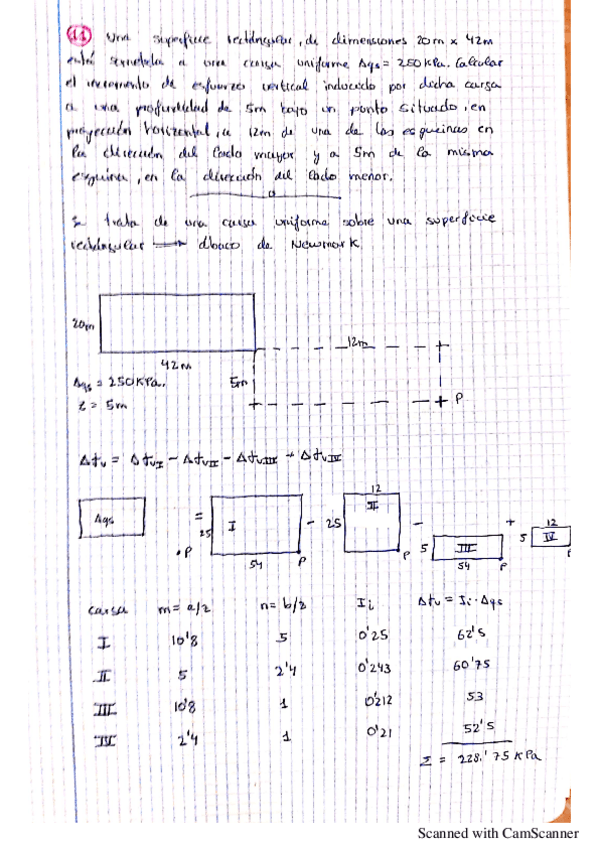 11 Una superficie rectángular, de dimensiones 20m x 42m
está sometida a una carga uniforme Δqs = 250KPa. Calcular
el incremento de esfuerzo vertical inducido por dicha carga
a una profundidad de 5m bajo un punto situado, en
proyección horizontal, a 12m de una de las esquinas en
la dirección del lado mayor y a 5m de la misma
esquina, en la dirección del lado menor.
Se trata de una carga uniforme sobre una superficie
rectángular → ábaco de Newmark
20m
12m
42m
Δqs = 250KPa.
5m
z = 5m
P
Δσv = ΔσvI - ΔσvII - ΔσvIII + ΔσvIV
Δqs
.P
=
25
I
54
P
-
25
12
II
P
-
5
III
54
P
+
5
12
IV
P
carga m = a/z n = b/z Ii Δσv = Ii·Δqs
I 10'8 5 0'25 62'5
II 5 2'4 0'243 60'75
III 10'8 1 0'212 53
IV 2'4 1 0'21 52'5
Σ = 228.'75 KPa
Scanned with CamScanner